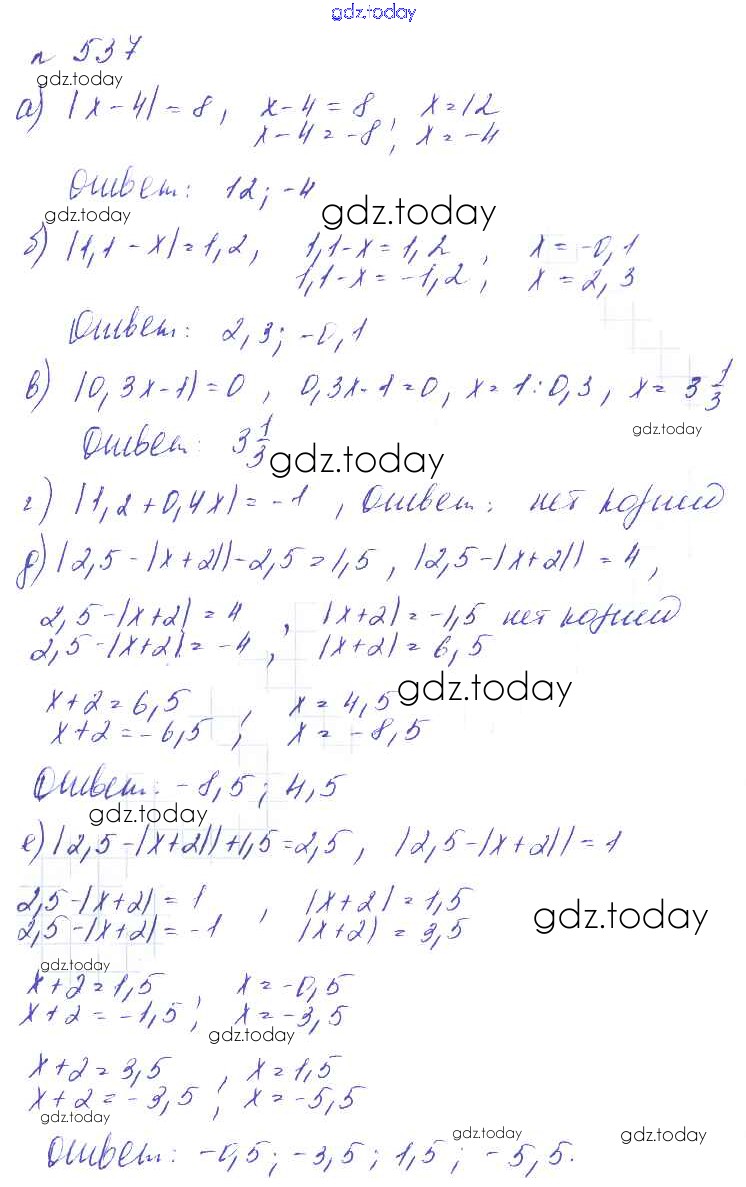 gdz.today
n 537
gdz.today
а) |x-4|=8, x-4=8, x=12
x-4=-8; x=-4
Ответ: 12; -4
gdz.today gdz.today
б) |1,1-x|=1,2, 1,1-x=1,2, x=-0,1
1,1-x=-1,2; x=2,3
Ответ: 2,3; -0,1
в) |0,3x-1|=0, 0,3x-1=0, x=1:0,3, x=3 1/3
gdz.today
Ответ: 3 1/3
gdz.today
г) |1,2+0,4x|=-1, Ответ: нет корней
д) |2,5-|x+2||-2,5=1,5, |2,5-|x+2||=4,
2,5-|x+2|=4, |x+2|=-1,5 нет корней
2,5-|x+2|=-4, |x+2|=6,5
gdz.today
x+2=6,5, x=4,5
x+2=-6,5; x=-8,5
Ответ: -8,5; 4,5
gdz.today
е) |2,5-|x+2||+1,5=2,5, |2,5-|x+2||=1
2,5-|x+2|=1, |x+2|=1,5
2,5-|x+2|=-1 |x+2|=3,5
gdz.today
gdz.today
x+2=1,5, x=-0,5
x+2=-1,5; x=-3,5
gdz.today
x+2=3,5, x=1,5
x+2=-3,5; x=-5,5
gdz.today
gdz.today gdz.today
Ответ: -0,5; -3,5; 1,5; -5,5.